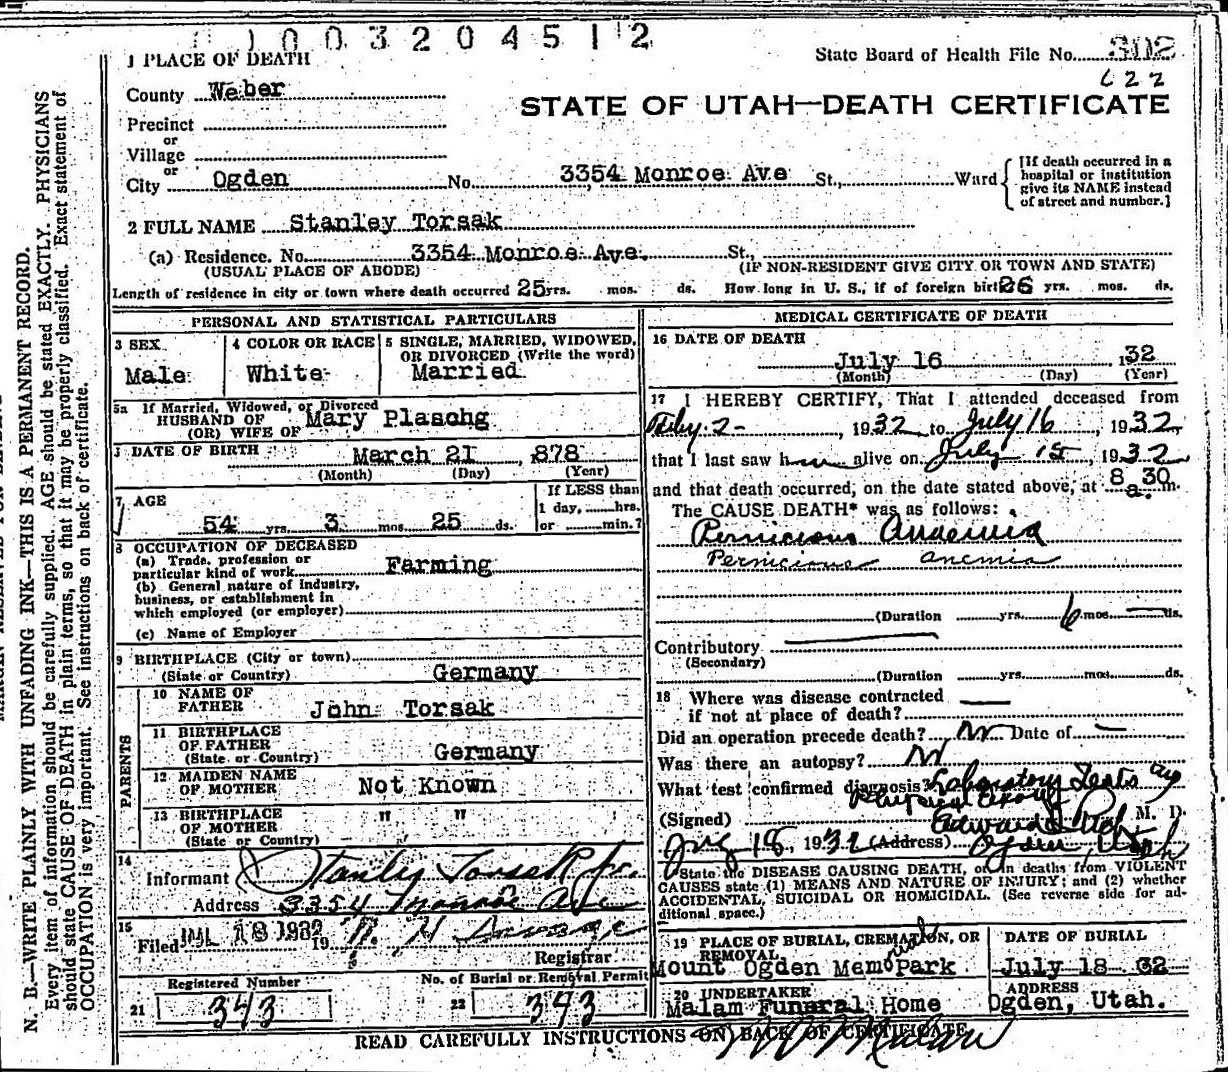 1 0 0 3 2 0 4 5 1 2
State Board of Health File No. 302
622
STATE OF UTAH—DEATH CERTIFICATE
1 PLACE OF DEATH
County Weber
Precinct
or
Village
or
City Ogden No. 3354 Monroe Ave St., Ward
[If death occurred in a hospital or institution give its NAME instead of street and number.]
2 FULL NAME Stanley Torsak
(a) Residence. No. 3354 Monroe Ave. St.,
(USUAL PLACE OF ABODE) (IF NON-RESIDENT GIVE CITY OR TOWN AND STATE)
Length of residence in city or town where death occurred 25 yrs. mos. ds. How long in U. S., if of foreign birth 26 yrs. mos. ds.
PERSONAL AND STATISTICAL PARTICULARS
3 SEX
Male
4 COLOR OR RACE
White
5 SINGLE, MARRIED, WIDOWED, OR DIVORCED (Write the word)
Married
5a If Married, Widowed, or Divorced
HUSBAND OF
(OR) WIFE OF Mary Plaschg
DATE OF BIRTH March 21, 878
(Month) (Day) (Year)
7 AGE
54 yrs. 3 mos. 25 ds.
If LESS than
1 day, hrs.
or min.?
8 OCCUPATION OF DECEASED
(a) Trade, profession or
particular kind of work Farming
(b) General nature of industry,
business, or establishment in
which employed (or employer)
(c) Name of Employer
9 BIRTHPLACE (City or town)
(State or Country) Germany
PARENTS
10 NAME OF
FATHER John Torsak
11 BIRTHPLACE
OF FATHER
(State or Country) Germany
12 MAIDEN NAME
OF MOTHER Not Known
13 BIRTHPLACE
OF MOTHER " "
(State or Country)
14
Informant Stanley Torsak Jr.
Address 3354 Monroe Ave
15
Filed JUL 18 1932 19
Registrar
Registered Number
21 343
No. of Burial or Removal Permit
22 343
MEDICAL CERTIFICATE OF DEATH
16 DATE OF DEATH
July 16 132
(Month) (Day) (Year)
17 I HEREBY CERTIFY, That I attended deceased from
2-, 1932 to July 16, 1932,
that I last saw him alive on July 15, 1932
and that death occurred, on the date stated above, at 8 30 a. m.
The CAUSE DEATH* was as follows:
Pernicious Anaemia
Pernicious anemia
(Duration yrs. 6 mos. — ds.
Contributory
(Secondary)
(Duration yrs. mos. ds.
18 Where was disease contracted
if not at place of death?
Did an operation precede death? No Date of —
Was there an autopsy? No
What test confirmed diagnosis? Laboratory Tests
Physical
(Signed) Edward M. D.
18, 1932 (Address) Ogden, Utah
*State the DISEASE CAUSING DEATH, or in deaths from VIOLENT
CAUSES state (1) MEANS AND NATURE OF INJURY; and (2) whether
ACCIDENTAL, SUICIDAL OR HOMICIDAL. (See reverse side for ad-
ditional space.)
19 PLACE OF BURIAL, CREMATION, OR
REMOVAL
Mount Ogden Memo Park
DATE OF BURIAL
July 18 32
20 UNDERTAKER
Malam Funeral Home
ADDRESS
Ogden, Utah.
READ CAREFULLY INSTRUCTIONS ON BACK OF CERTIFICATE
N. B.—WRITE PLAINLY WITH UNFADING INK—THIS IS A PERMANENT RECORD.
Every item of information should be carefully supplied. AGE should be stated EXACTLY. PHYSICIANS
should state CAUSE OF DEATH in plain terms, so that it may be properly classified. Exact statement of
OCCUPATION is very important. See instructions on back of certificate.